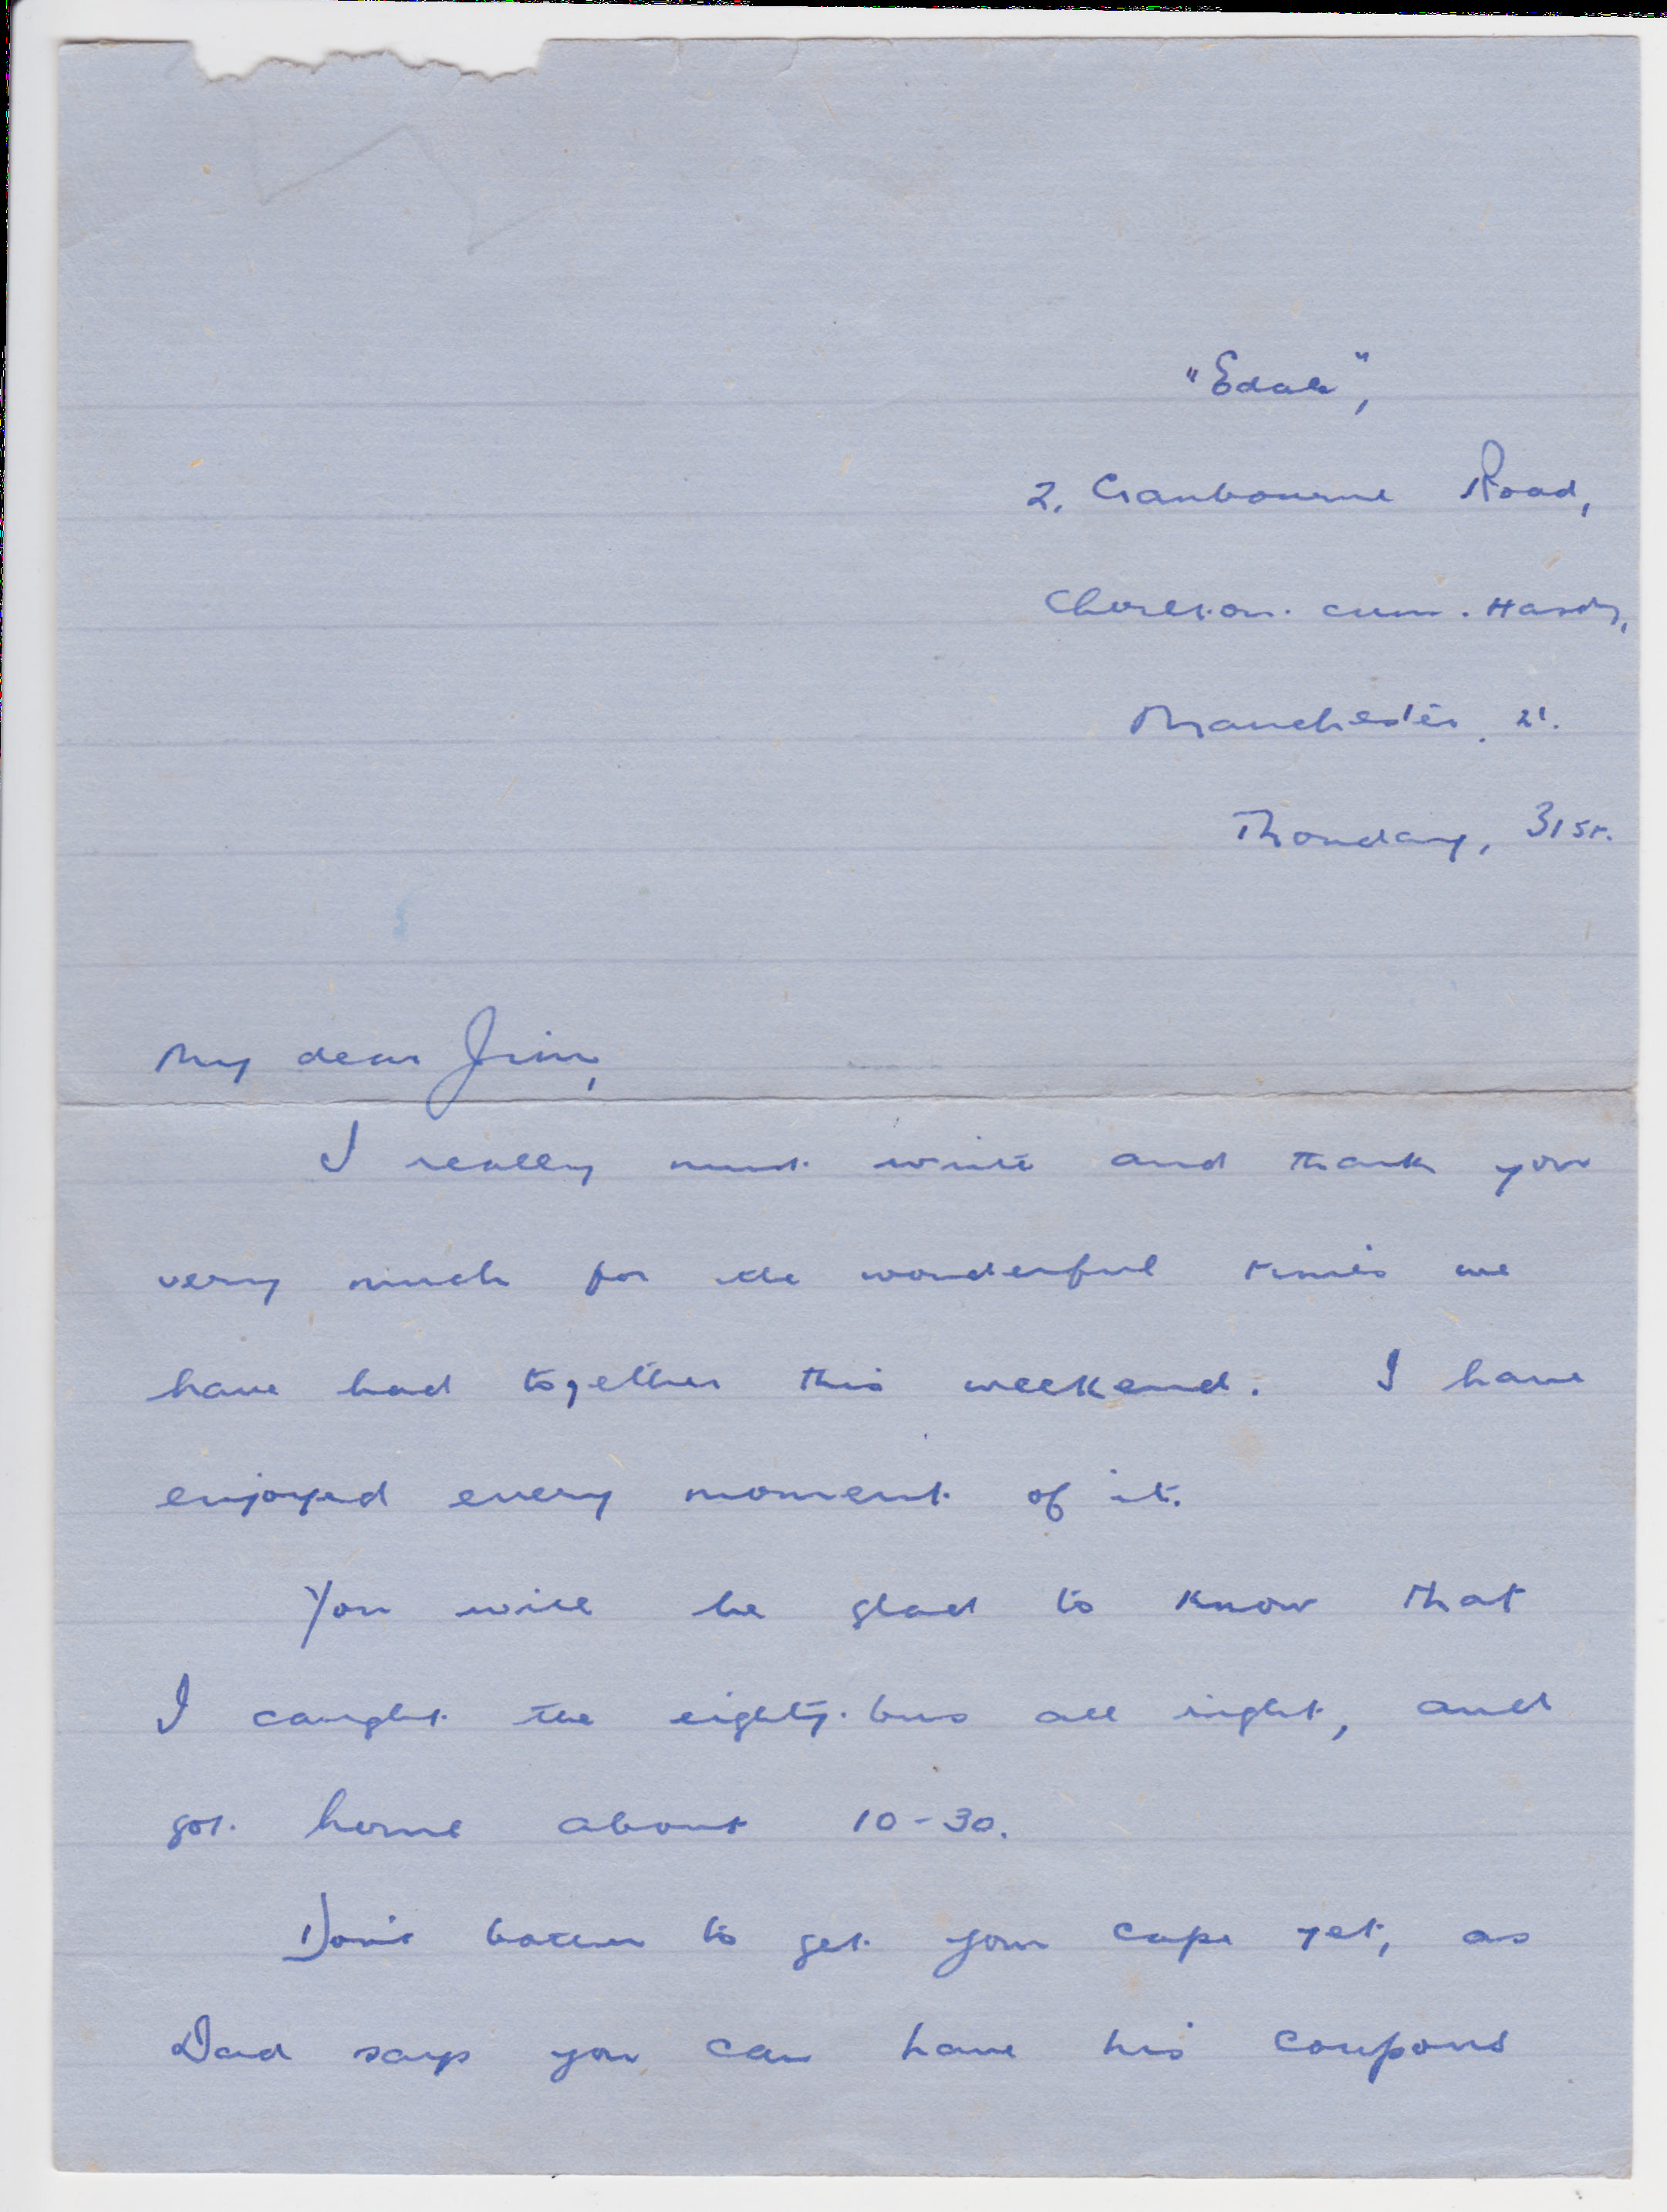 "Edale",
2, Cranbourne Road,
Chorlton-cum-Hardy,
Manchester, 21.
Monday, 31st.
My dear Jim,
I really must write and thank you
very much for the wonderful times we
have had together this weekend. I have
enjoyed every moment of it.
You will be glad to know that
I caught the eighty-bus all right, and
got home about 10-30.
Don't bother to get your cape yet, as
Dad says you can have his coupons